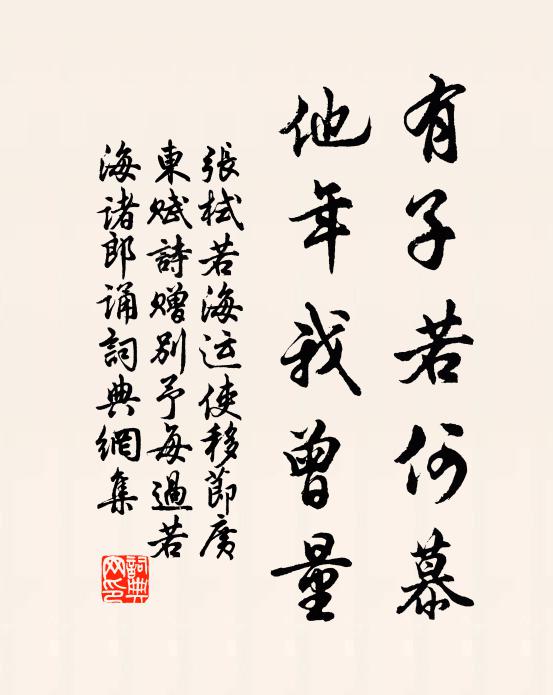 有子若何慕
他年我曾量
張栻若海运使移節廣
東赋詩赠別予每過若
海诸郎诵詞典網集
詞典网印